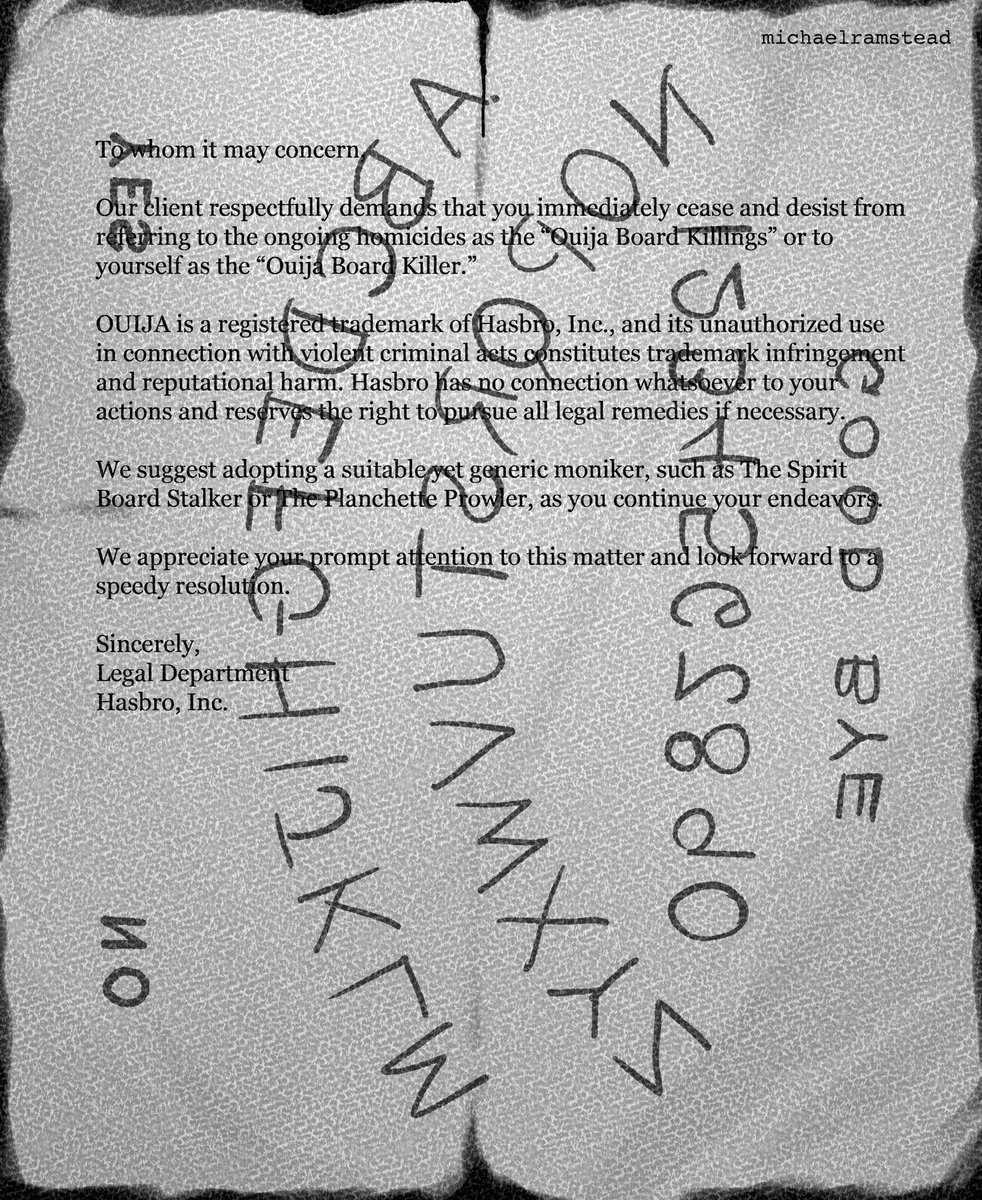 michaelramstead
To whom it may concern,
Our client respectfully demands that you immediately cease and desist from
referring to the ongoing homicides as the “Ouija Board Killings” or to
yourself as the “Ouija Board Killer.”
OUIJA is a registered trademark of Hasbro, Inc., and its unauthorized use
in connection with violent criminal acts constitutes trademark infringement
and reputational harm. Hasbro has no connection whatsoever to your
actions and reserves the right to pursue all legal remedies if necessary.
We suggest adopting a suitable yet generic moniker, such as The Spirit
Board Stalker or The Planchette Prowler, as you continue your endeavors.
We appreciate your prompt attention to this matter and look forward to a
speedy resolution.
Sincerely,
Legal Department
Hasbro, Inc.
YES
NO
A B C D E F G H I J K L M
N O P Q R S T U V W X Y Z
1 2 3 4 5 6 7 8 9 0
GOOD BYE